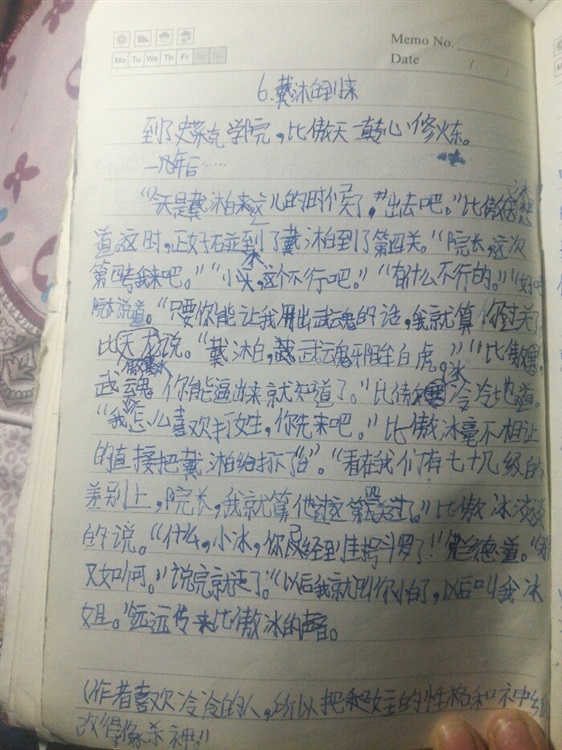 Memo No.
Date / /
Mo Tu We Th Fr Sa Su
6.戴沐白到来
到了史莱克学院,比傲天 真心修炼。
一几年后……
“今天是戴沐白来这儿的时候了,出去吧。”比傲
道。这时,正好碰到了戴沐白到了第四关。“院长,这次
第四考我来吧。”“小冰,这个不行吧。”“有什么不行的。”“好吧
院长说道。“只要你能让我用出武魂的话,我就算你过关了
比傲冰说。“戴沐白,武魂邪眸白虎。”“比傲冰,
武魂 你能逼出来就知道了。”比傲冰冷冷地道。
“我怎么喜欢打女生,你先来吧。”比傲冰毫不相让
的直接把戴沐白给打了。“看在我们有七十几级的
差别上,院长,我就算他过这第四关过了。”比傲冰淡淡
的说。“什么,小冰,你已经到封号斗罗了!”弗兰德道。
又如何。”说完就走了。“以后我就叫你小白了,以后叫我冰
姐。”远远传来比傲冰的声音。
(作者喜欢冷冷的人,所以把女主的性格和
次得修杀神。)